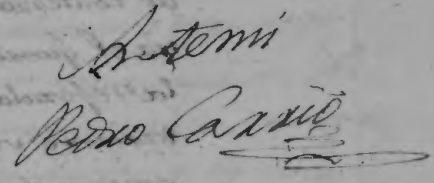 Antemi
Pedro Carrió